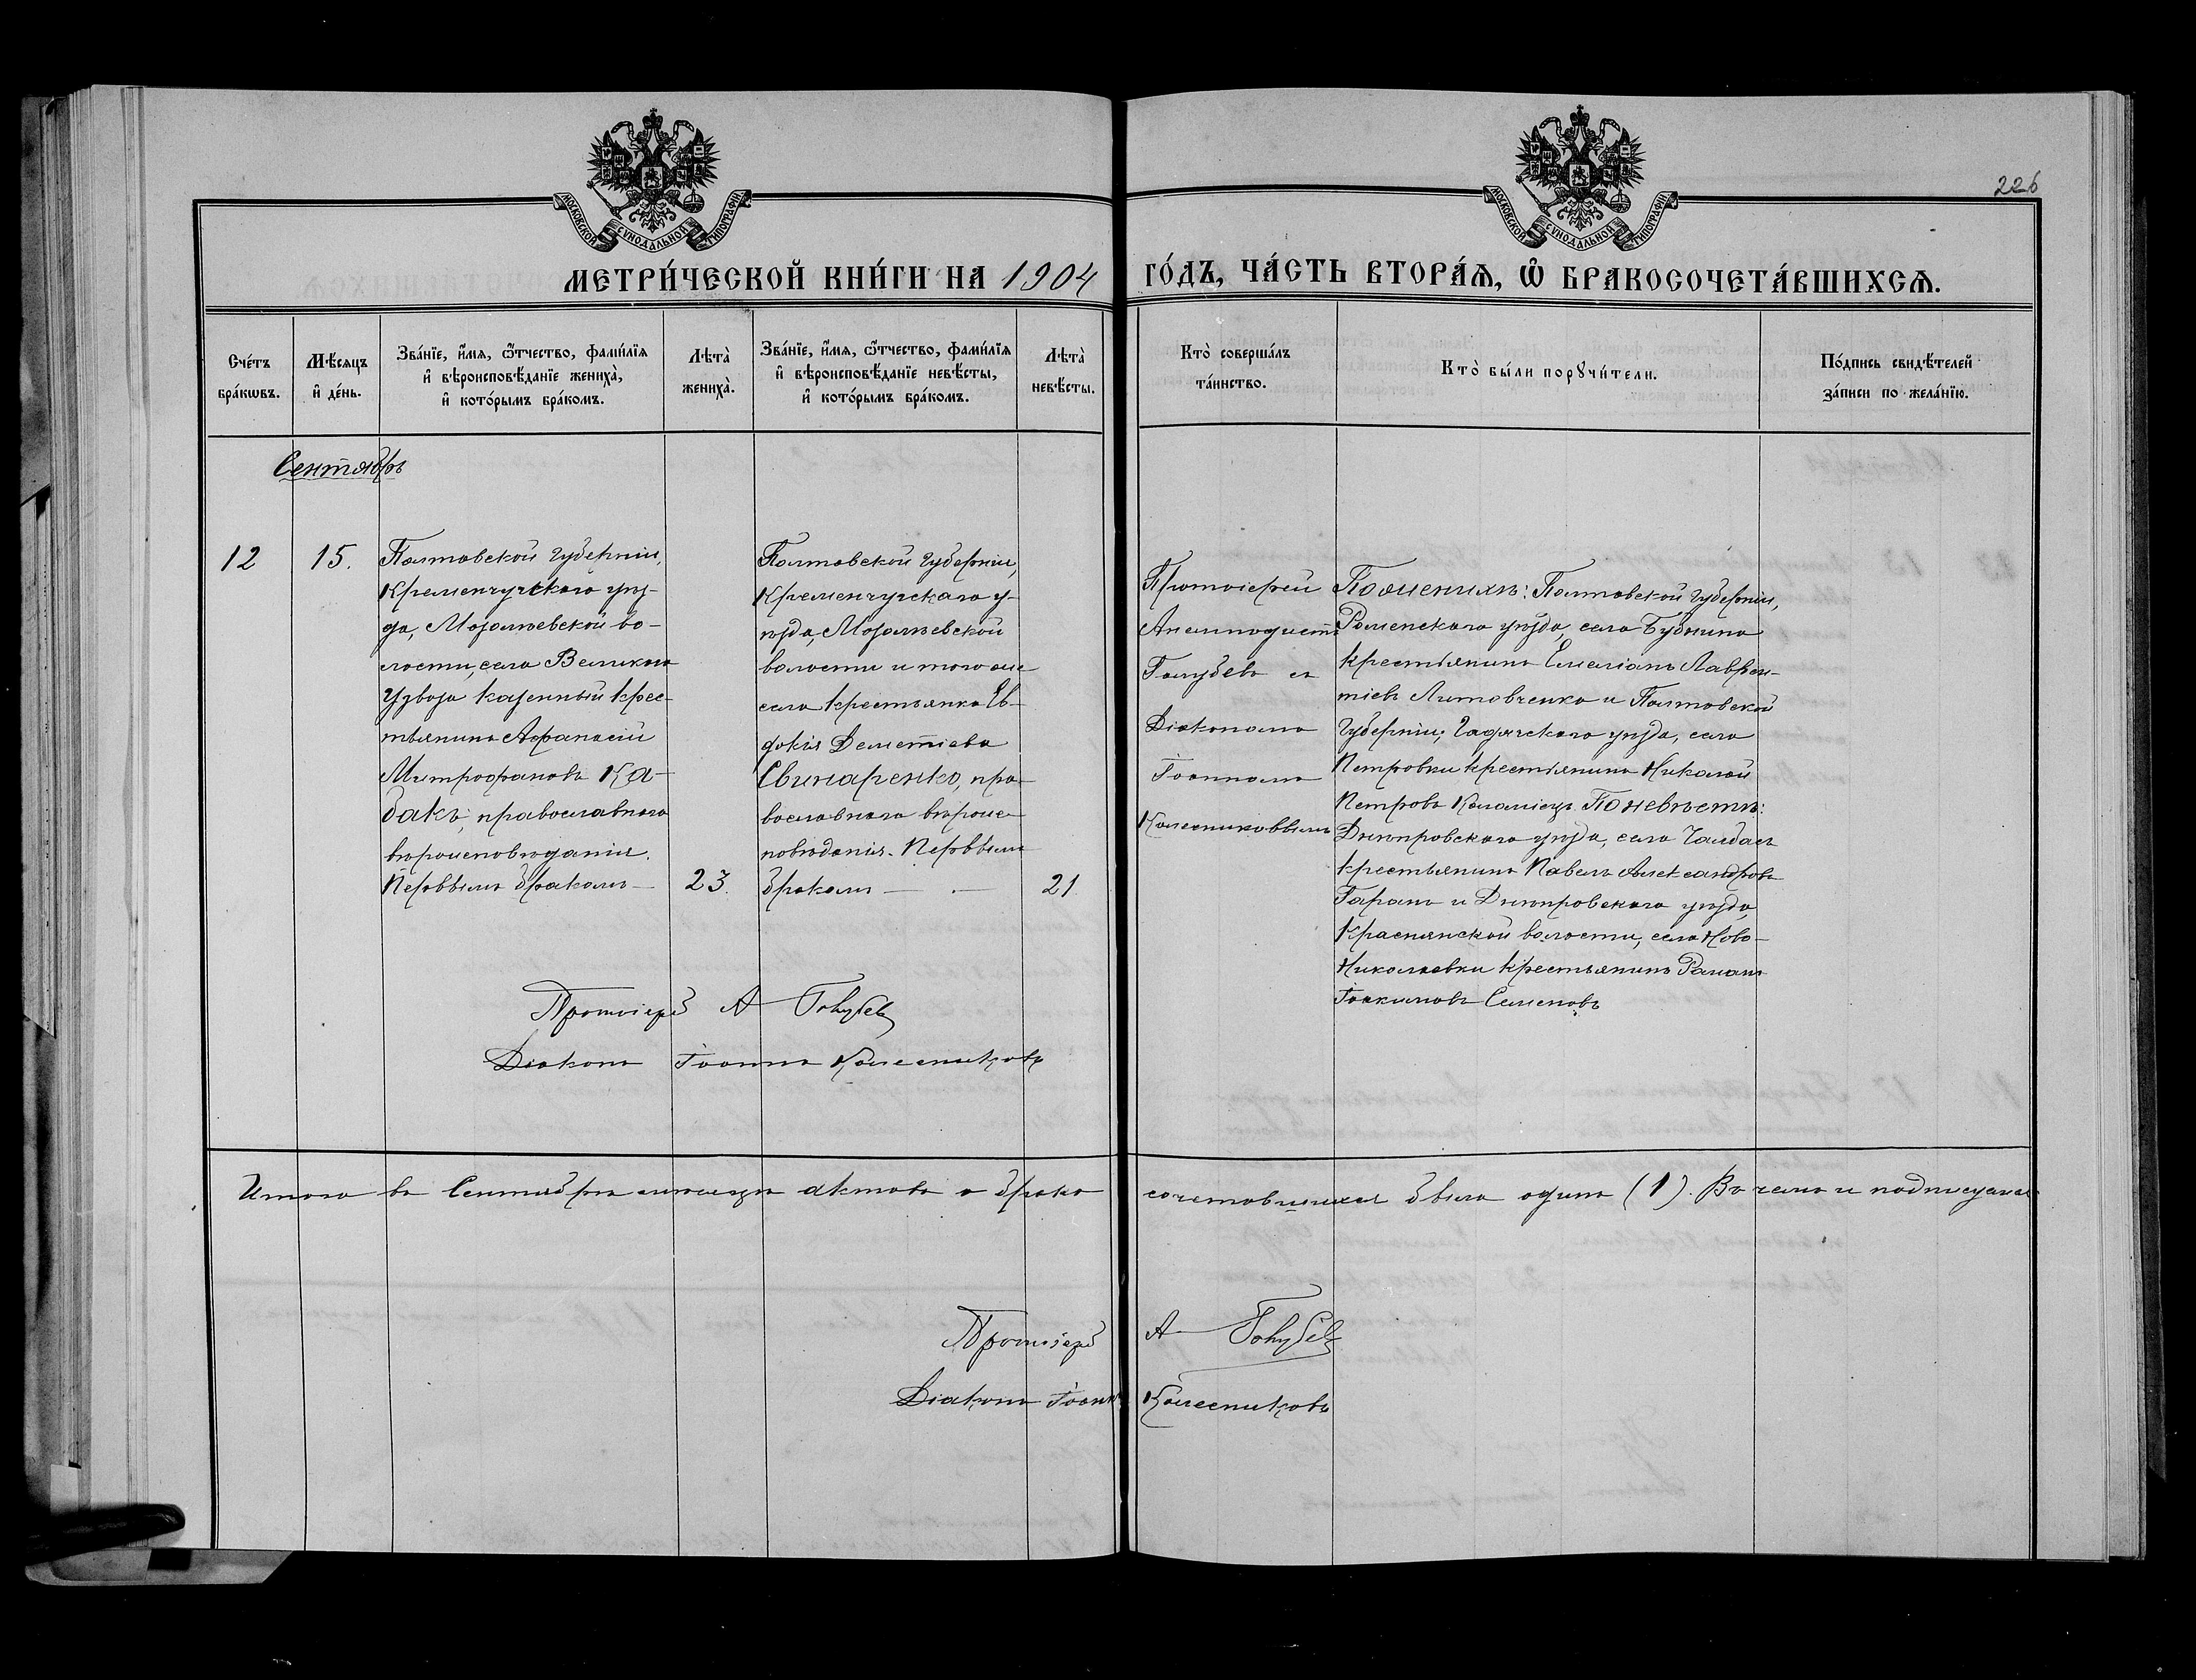 МОСКОВСКОЙ СѴНОДАЛЬНОЙ ТИПОГРАФІИ
МОСКОВСКОЙ СѴНОДАЛЬНОЙ ТИПОГРАФІИ
226
МЕТРИ́ЧЕСКОЙ КНИ́ГИ НА 1904
ГО́ДЪ, ЧА́СТЬ ВТОРА́Ѧ, Ѡ҆ БРАКОСОЧЕТА́ВШИХСѦ.
Сче́тъ
бра́кѡвъ.
Мѣ́сяцъ
и҆ де́нь.
Зва́нїе, и҆́мѧ, ѻ҆́тчество, фами́лїѧ
и҆ вѣроисповѣ́данїе жениха̀,
и҆ кото́рымъ бра́комъ.
Лѣта̀
жениха̀.
Зва́нїе, и҆́мѧ, ѻ҆́тчество, фами́лїѧ
и҆ вѣроисповѣ́данїе невѣ́сты,
и҆ кото́рымъ бра́комъ.
Лѣта̀
невѣ́сты.
Кто̀ соверша́лъ
та́инство.
Кто̀ бы́ли порꙋчи́тели.
По́дпись свидѣ́телей
за́писи по жела́нїю.
Сентябрь
12
15.
Полтавской губерніи,
Кременчугского уѣз-
да, Мозолѣевской во-
лости, села Великого
Узвоза казенный крес-
тьянинъ Афанасій
Митрофановъ Ка-
бакъ, православного
вѣроисповѣданія.
Первымъ бракомъ —
23.
Полтавской губерніи,
Кременчугскаго у-
ѣзда, Мозолѣевской
волости и того же
села крестьянка Ев-
докія Деметіева
Свинаренко, пра-
вославнаго вѣроис-
повѣданія. Первымъ
бракомъ —
21
Протоіерей
Анемподистъ
Голубевъ съ
Діакономъ
Іоанномъ
Колесниковымъ
По женихѣ: Полтавской губерніи,
Роменскаго уѣзда, села Будкина
крестьянинъ Емеліанъ Лаврен-
тіевъ Литовченко и Полтавской
губерніи, Гадячскаго уѣзда, села
Петровки крестьянинъ Николай
Петровъ Коломіецъ. По невѣстѣ:
Днѣпровскаго уѣзда, села Чалбасъ
крестьянинъ Павелъ Александровъ
Таранъ и Днѣпровскаго уѣзда,
Краснянской волости, села Ново-
Николаевки крестьянинъ Романъ
Іоакимовъ Семеновъ
Протоіерей А Голубевъ
Діаконъ Іоаннъ Колесниковъ
Итого въ Сентябрѣ мѣсяцѣ актовъ о брако
сочетовшихся было одинъ (1). Въ чемъ и подписуемся
Протоіерей А Голубевъ
Діаконъ Іоаннъ Колесниковъ